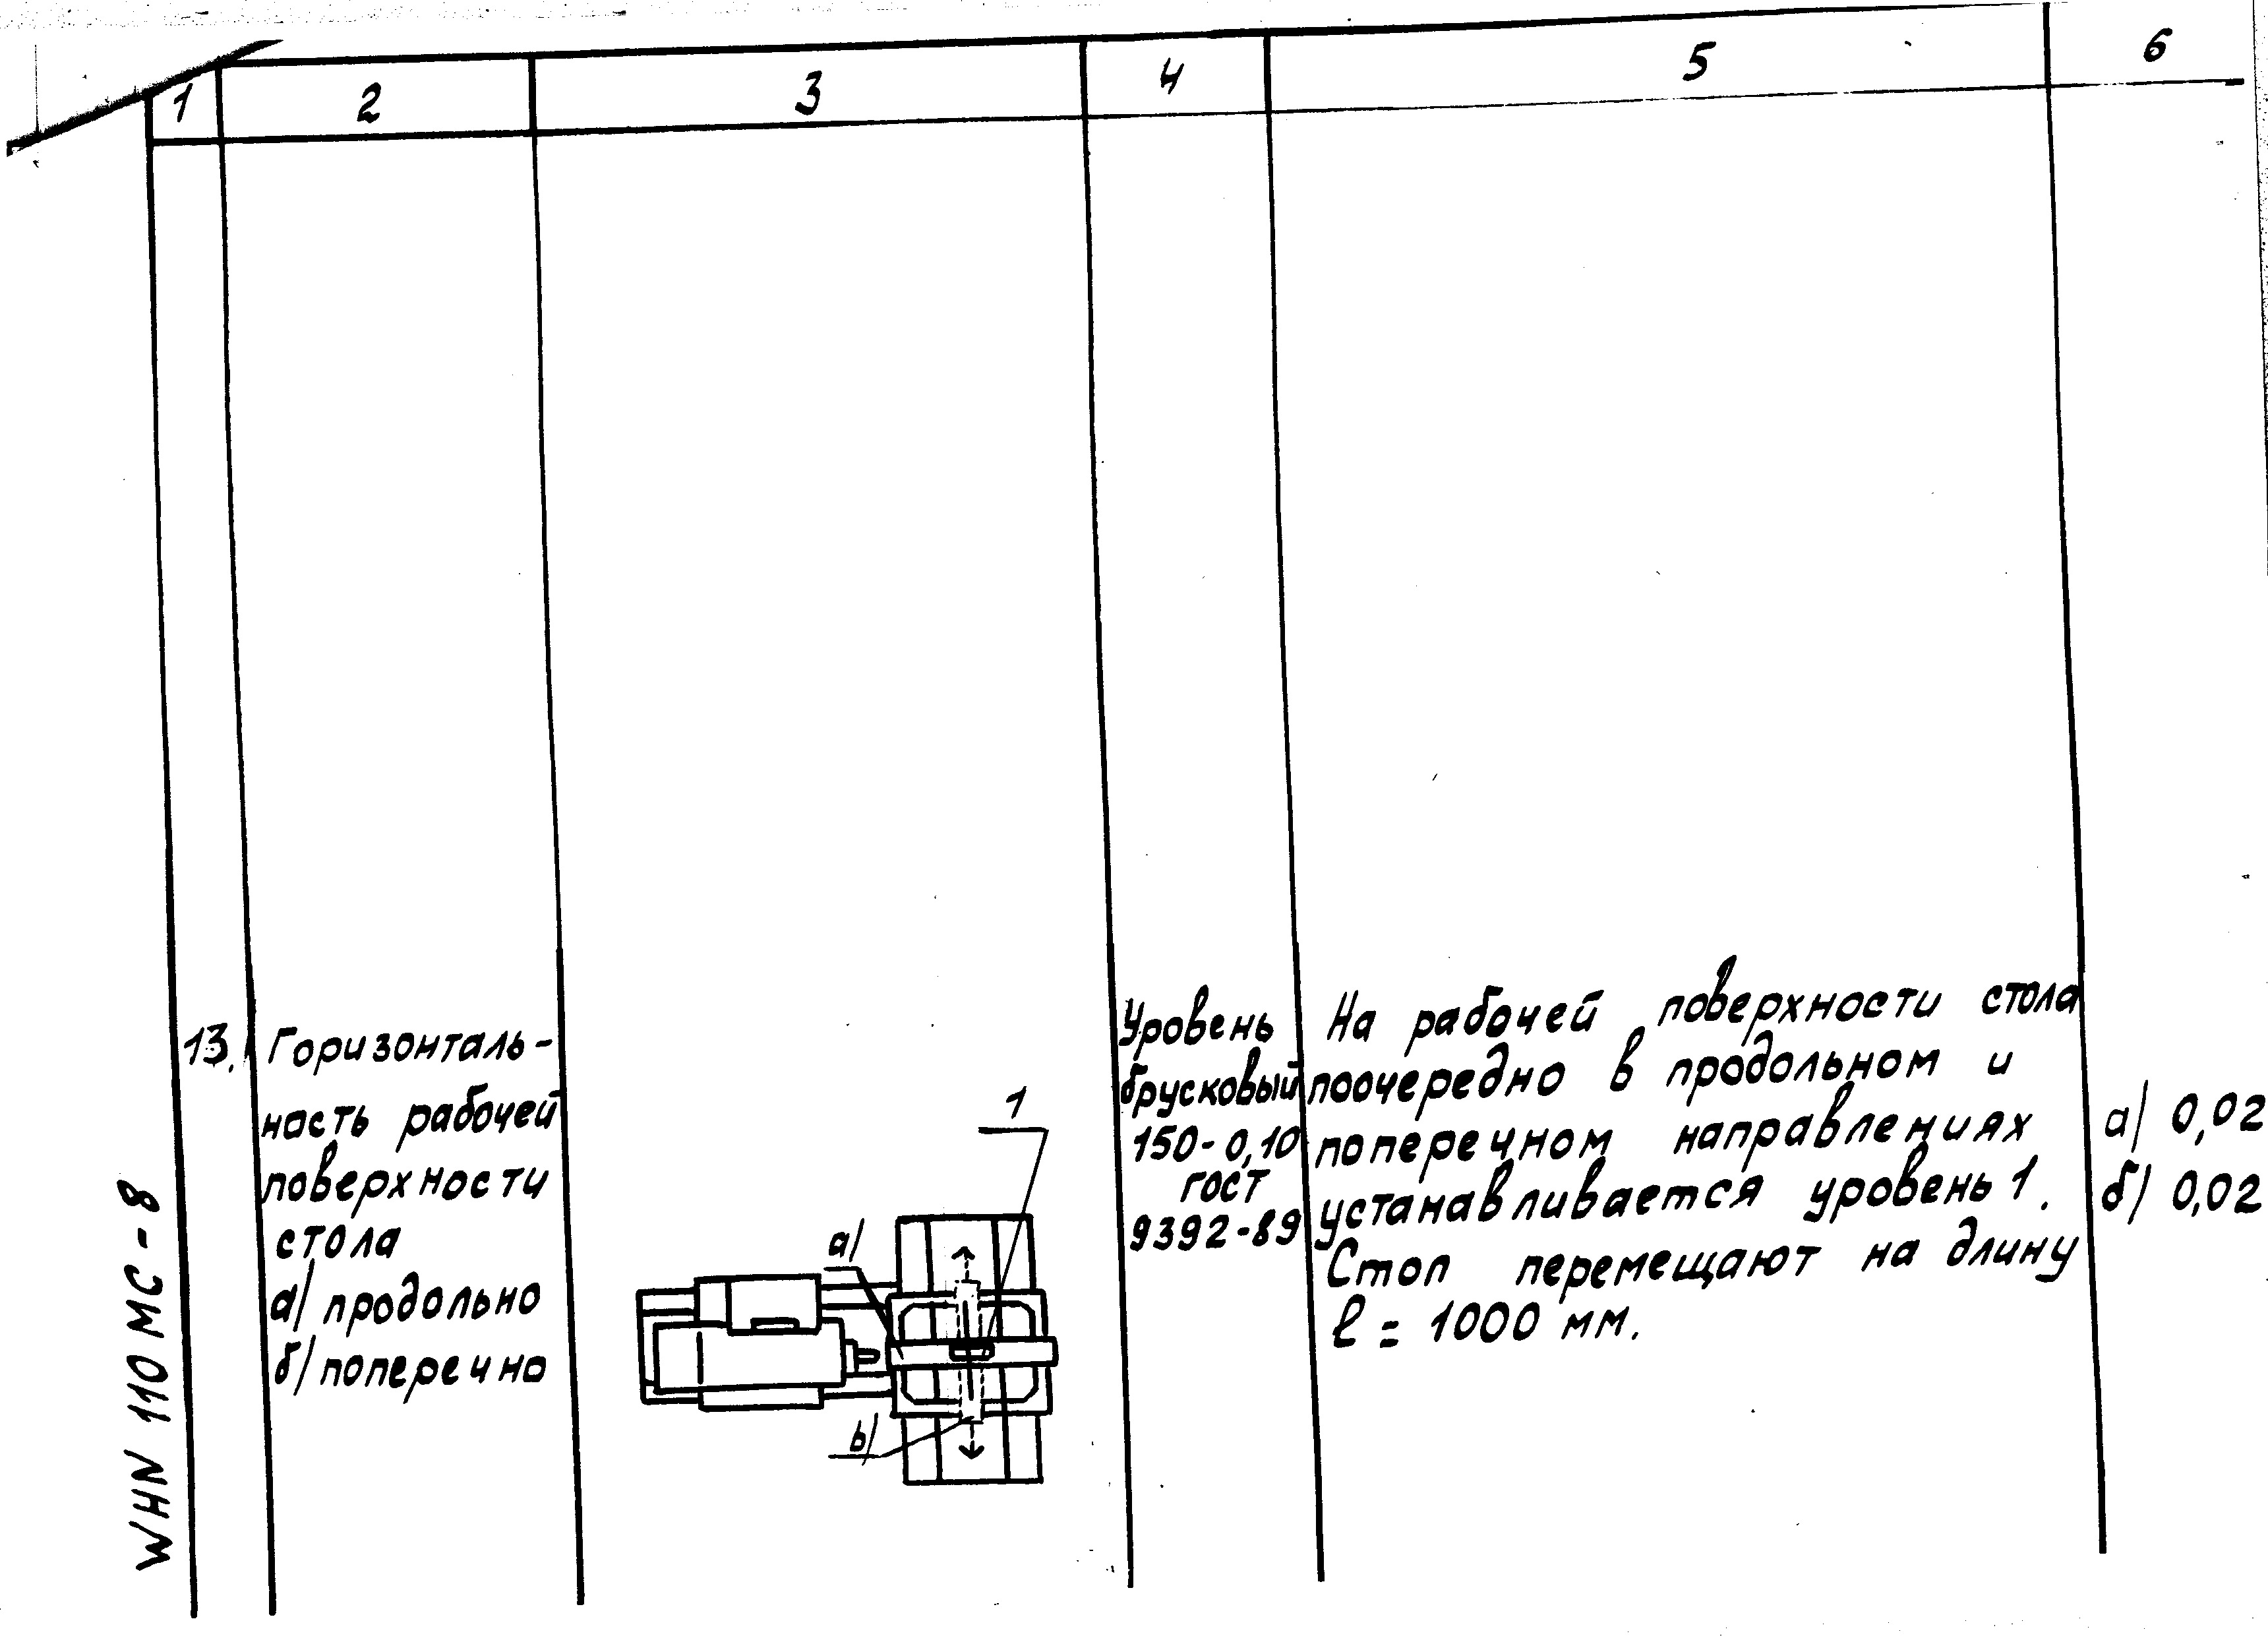 1 2 3 4 5 6
13. Горизонталь-
ность рабочей
поверхности
стола
а/ продольно
б/ поперечно
1
а/
b/
Уровень
брусковый
150-0,10
гост
9392-89
На рабочей поверхности стола
поочередно в продольном и
поперечном направлениях
устанавливается уровень 1.
Стол перемещают на длину
ℓ = 1000 мм.
а/ 0,02
б/ 0,02
WHN 110 MC-8